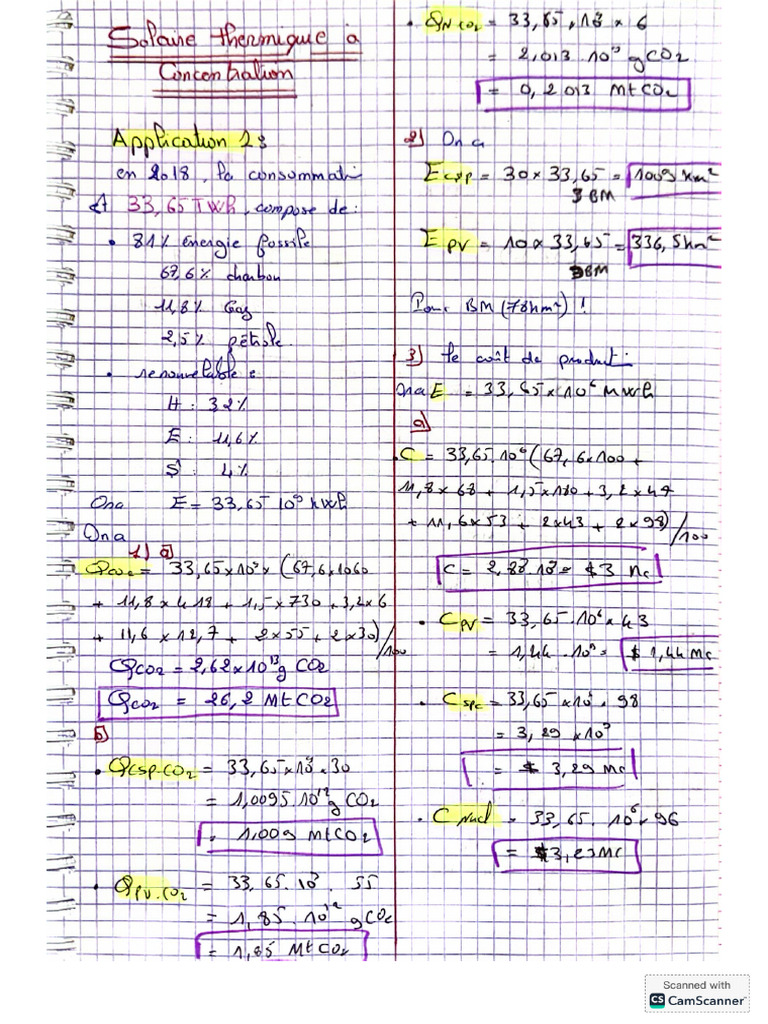 Solaire thermique à
Concentration
Application 2:
en 2018, la consommati
et 33,65 TWh, compose de:
• 81% énergie fossile
67,6% charbon
11,8% Gaz
2,5% pétrole.
• renouvelable:
H: 3,2%
E: 11,6%
S: 4%
On a E = 33,65 10⁹ kWh
On a
1) a)
QCO2 = 33,65×10⁹× (67,6×1060
+ 11,8×418 + 1,5×730 + 3,2×6
+ 11,6×12,7 + 2×55 + 2×30)/100
QCO2 = 2,62×10¹³ g CO2
QCO2 = 26,2 MtCO2
b)
• QCSP-CO2 = 33,65×10⁹×30
= 1,0095.10¹² g CO2
= 1,009 MtCO2
• QPV-CO2 = 33,65.10⁹. 55
= 1,85.10¹² gCO2
= 1,85 MtCO2
• QN CO2 = 33,65 × 10⁹ × 6
= 2,013.10¹¹ gCO2
= 0,2013 MtCO2
2) On a
Ecsp = 30×33,65 = 1009 km²
BM
EPV = 10×33,65 = 336,5 km²
BM
Pour BM (78km²)!
3) le coût de producti
On a E = 33,65×10⁶ MWh
a)
C = 33,65.10⁶(67,6×100 +
11,8×68 + 1,5×180 + 3,2×47
+ 11,6×53 + 2×43 + 2×98)/100
C = 2,88.10⁹ = $3
• CPV = 33,65.10⁶×43
= 1,44.10⁹ = $1,44 Mc
• Cspc = 33,65×10⁶. 98
= 3,29×10⁹
= $ 3,29 Mc
• C Nucl = 33,65. 10⁶× 96
= $3,23Mc
Scanned with
CS CamScanner